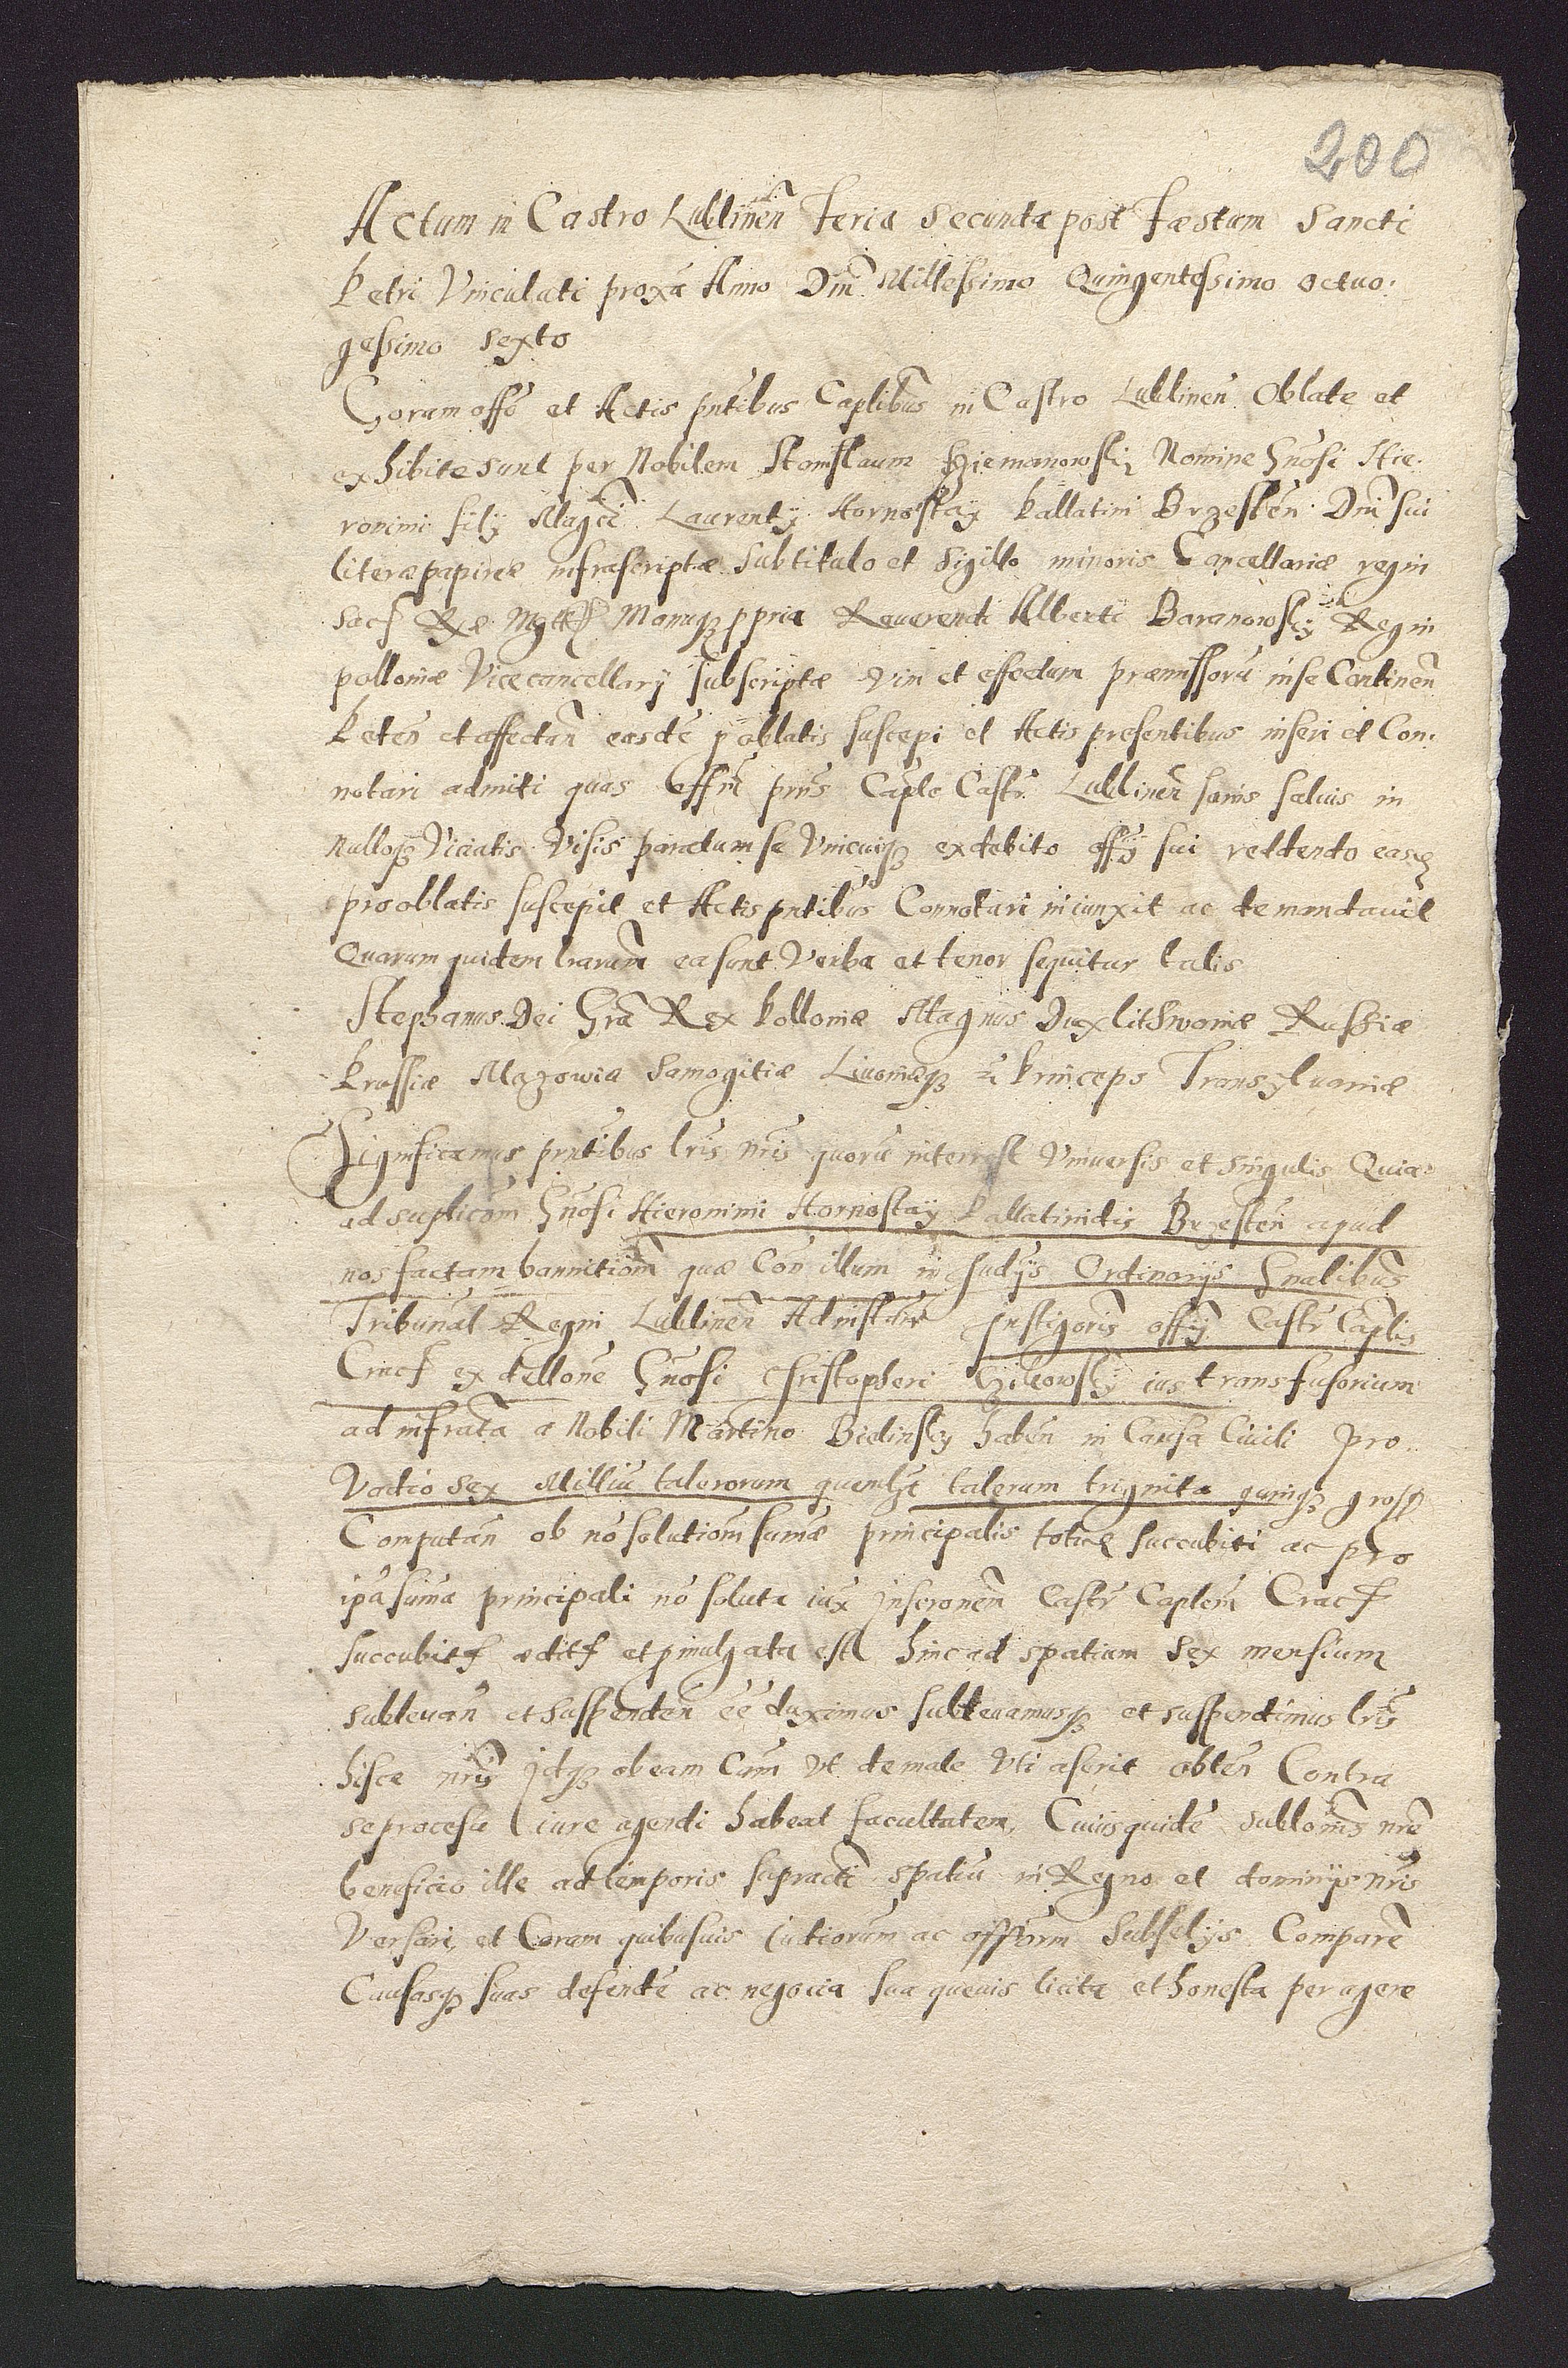 200
Actum in Castro Lublinen̄ Feria Secunda post Fæstum Sancti
Petri Vinculati proxa Anno Dni Millessimo Quingentessimo octuo.
gessimo sexto
Coram offo et Actis pntibus Caplibus in Castro Lublinen Oblate et
exhibite sunt per Nobilem Stanislaum Nomine Gnosi Hie.
ronimi filÿ Magci Laurentÿ Hornostaÿ Pallatini Brzesten Dni sui
literæ papireæ infrascriptæ Subtitulo et Sigillo minoris Cancellariæ regni
Sacr Ræ Mattis Manuq ppria Reuerendi Alberti Baranowskÿ Regni
polloniæ Vicecancellarÿ subscriptæ vim et effectum præmissoru in se Continen
Peten et affectan easde p oblatis suscepi et Actis presentibus inseri et Con.
notari admiti quas offm pns Caple Castr Lublinen sanis saluis in
nulloq Viciatis Visis paratum se Vnicuiq ex debito offÿ sui reddendo easq
pro oblatis suscepit et Actis pntibus Connotari iniunxit ac demandauit
Quarum quidem lrarum ea sunt Verba et tenor sequitur talis
Stephanus Dei Gra Rex Polloniæ Magnus Dux lithwaniæ Russiæ
Prussiæ Mazowia Samogitiæ Liuoniæq Princeps Transyluaniæ
Significamus pntibus lris nris quoru interest Vniuersis et Singulis Quia
ad suplicom Gnosi Hieronimi Hornostaÿ Pallatinidis Brzesten apud
nos factam bannitiom quæ Con illum in Judÿs Ordinarÿs Gnalibus
Tribunal Regni Lublinen Ad Instigoris offÿ Castr Caplis
Cracf ex dellone Gnosi Christopheri ius transfusorium
ad infrata a Nobili Martino Bielinskÿ haben in Causa Ciuili pro
Vadio sex Milliu talerorum quemlt talerum triginta quinq gross
Computan ob no solutiom sumæ principalis totieq succubiti ac pro
ipsa suma principali no soluta iux Inscronem Castr Caplem Cracf
succubitf æditf et pmulgata est hinc ad spatium Sex mensium
subleuan et suspenden ee duximus subleuamusq et suspendimus lris
hisce nris Idq ob eam Cam Vt de male Vti aserit obten Contra
se procesu iure agendi habeat facultatem, Cuiusquide sublonis nræ
beneficio ille ad temporis supracti spatiu in Regno et dominÿs nris
Versari, et Coram quibusuis Iudiorum ac offiorum Subselÿs Compare
Causasq suas defende ac negocia sua queuis licita et honesta per agere